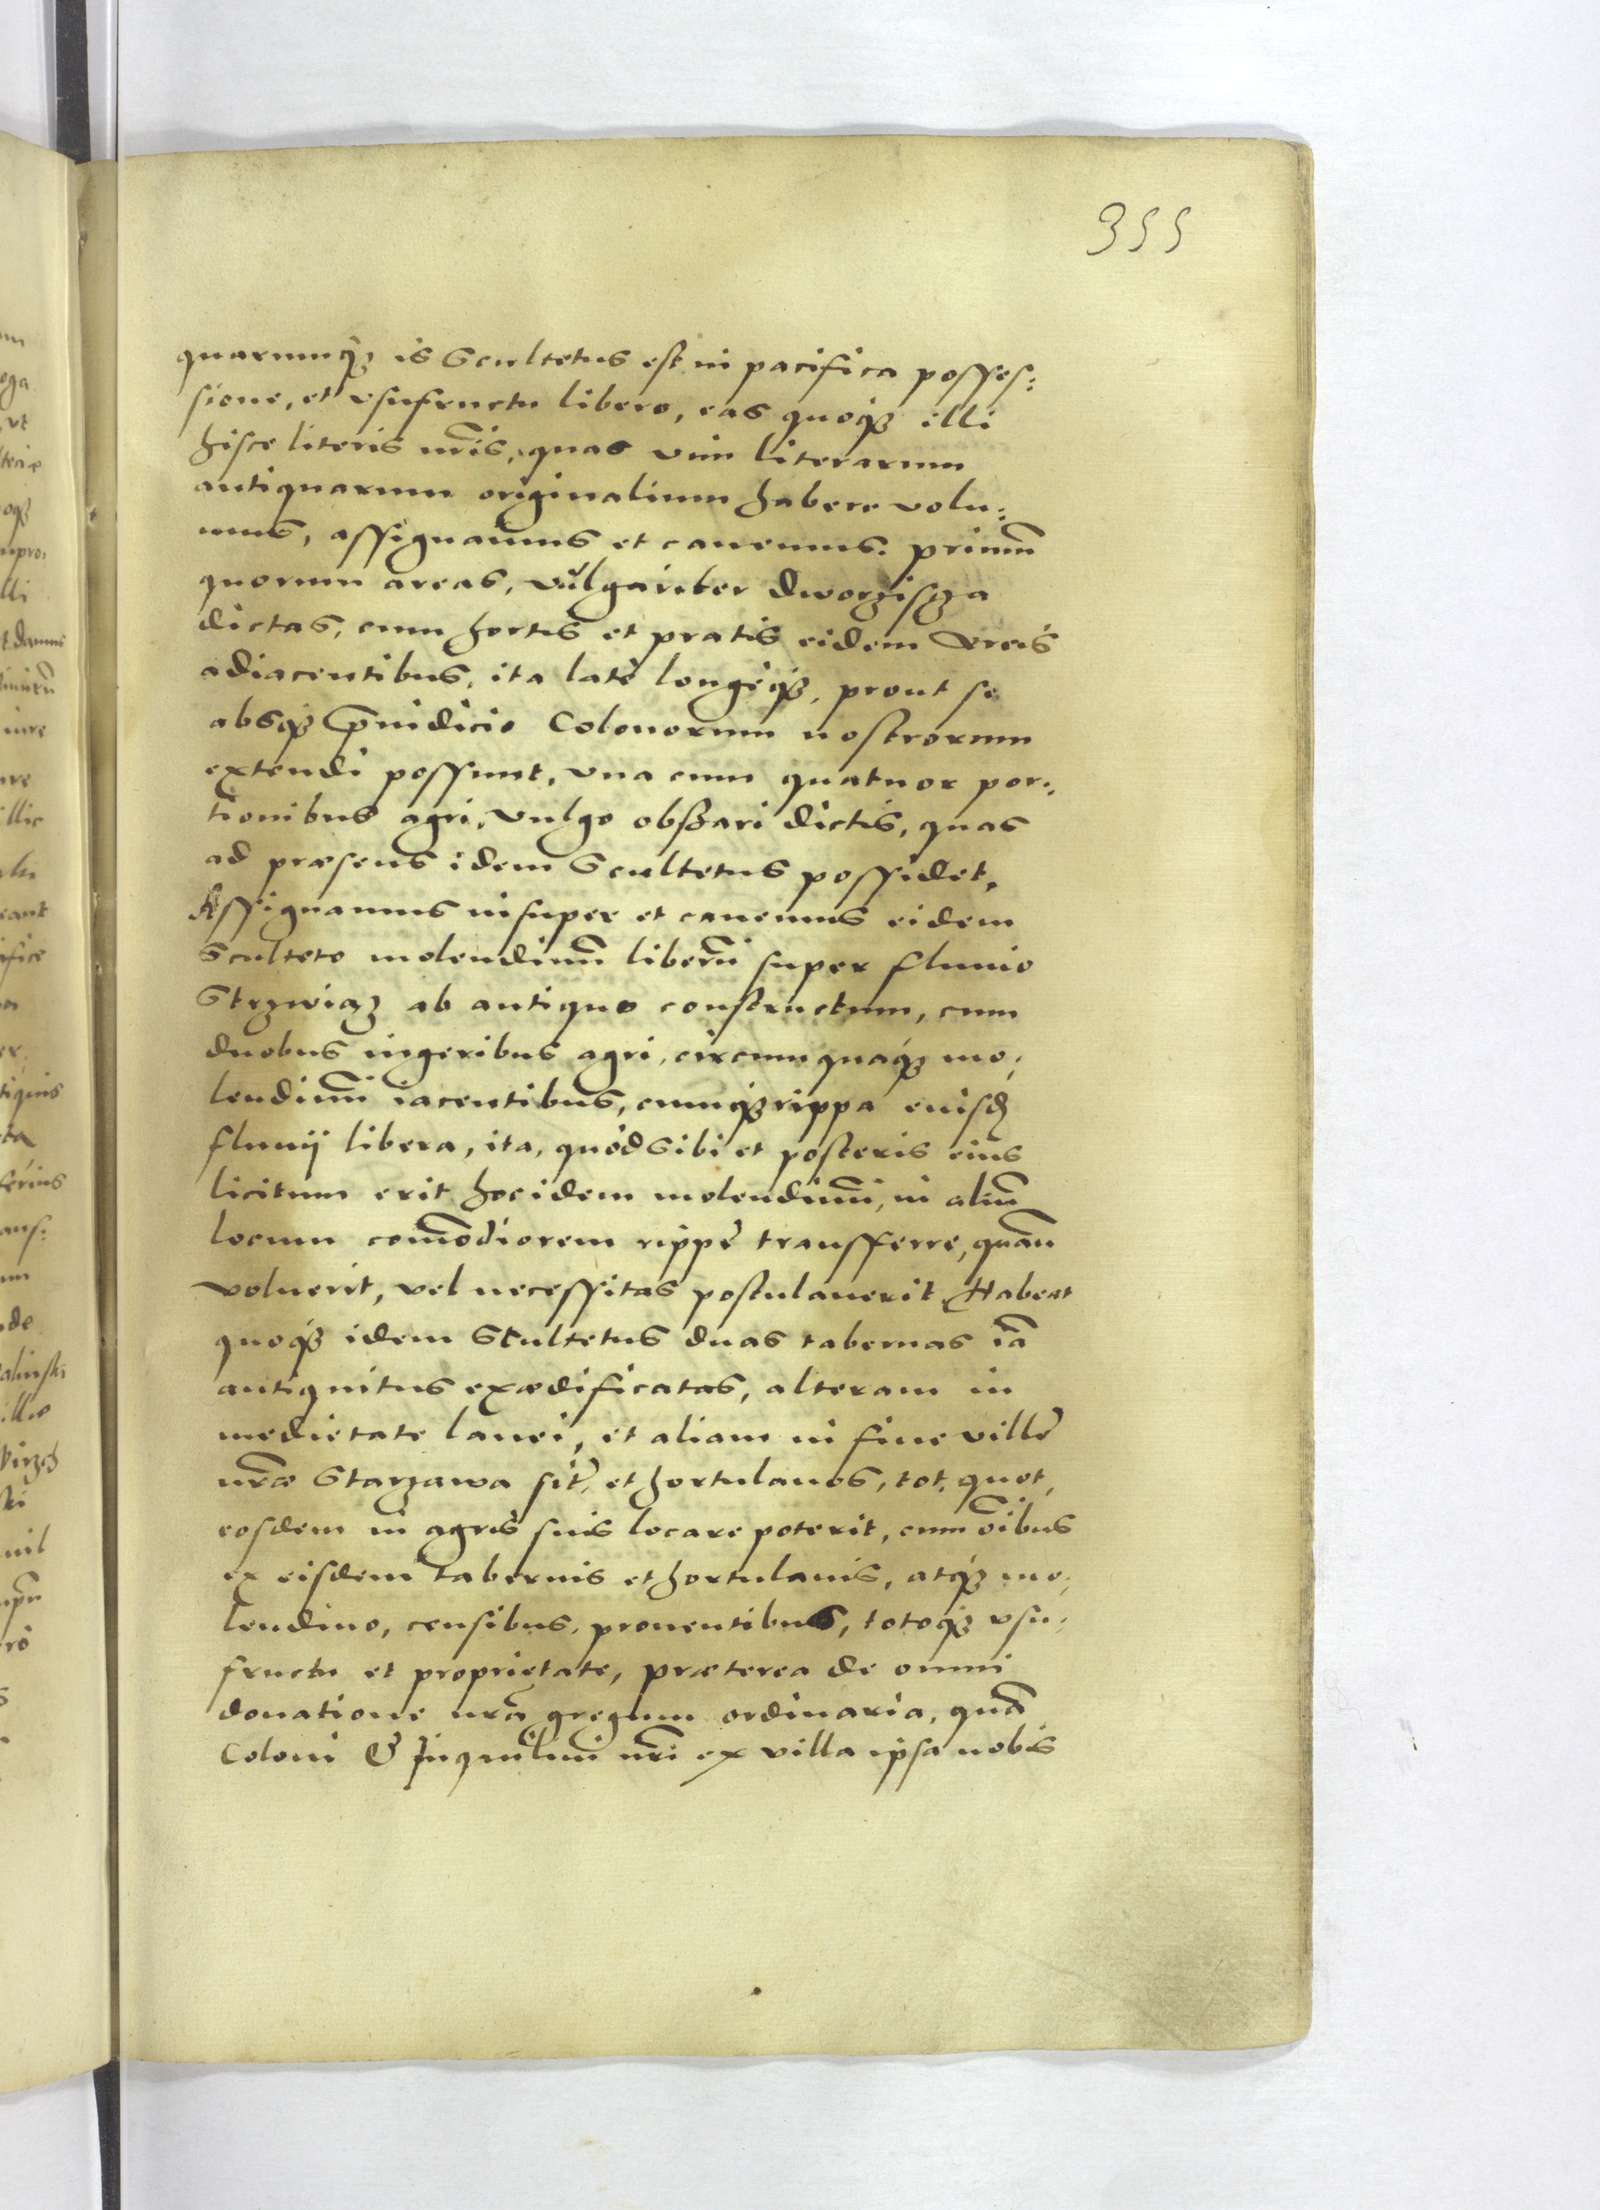 355
quarumqȝ is Scultetus est in pacifica posses:
sione, et vsufructu libero, eas quoqȝ illi
hisce literis nr̃is, quas vim literarum
antiquarum originalium habere volu:
mus, assignamus et cauemus. primũ
quorum areas, vulgariter dworzisza
dictas, cum hortis et pratis eidem areis
adiacentibus, ita latè longèqȝ, prout se
absqȝ p̃iudicio Colonorum nostrorum
extendi possunt, vna cum quatuor por:
tionibus agri, vulgo obszari dictis, quas
ad præsens idem Scultetus possidet,
Assignamus insuper et cauemus eidem
Sculteto molendinũ liberũ super fluuio
Strzwiąz ab antiquo constructum, cum
duobus iugeribus agri, circumquaqȝ mo:
lendinũ iacentibus, cumqȝ rippa eiusd̃
fluuij libera, ita, quòd sibi et posteris eius
licitum erit hoc idem molendinũ, in aliũ
locum com̃odiorem rippę transfferre, quãdo
voluerit, vel necessitas postulauerit. Habeat
quoqȝ idem Scultetus duas tabernas iã
antiquitus exædificatas, alteram in
medietate lanei, et aliam in fine villę
nr̃æ Starzawa sitę, et hortulanos, tot, quot,
eosdem in agris suis locare poterit, cum õibus
ex eisdem tabernis et hortulanis, atqȝ mo:
lendino, censibus, prouentibus, totoqȝ vsu:
fructu et proprietate, præterea de omni
donatione nr̃a gregum ordinaria, quã
Coloni & Inquilini nr̃i ex villa ipsa nobis